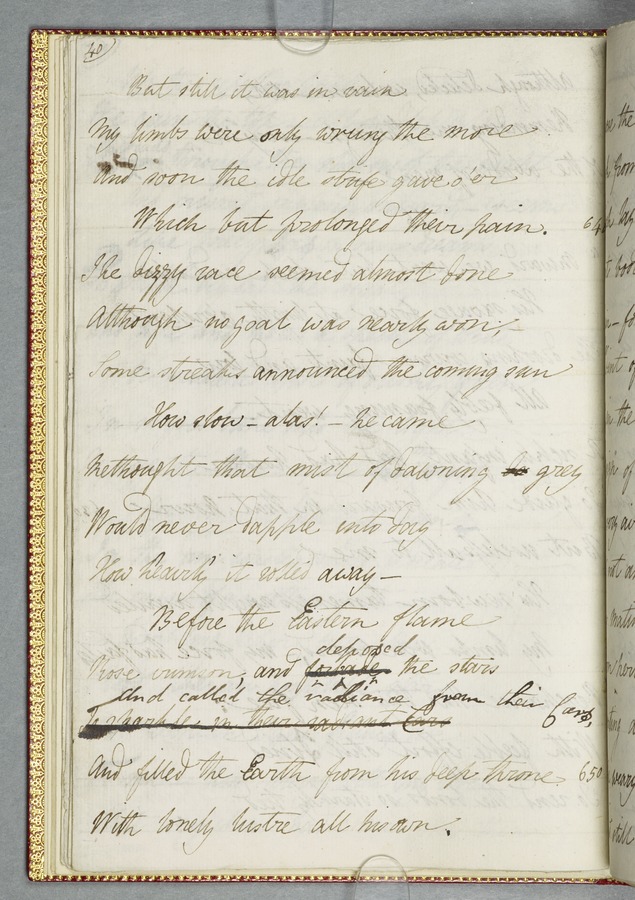 40
But still it was in vain
My limbs were only wrung the more
And soon the idle strife gave o'er
Which but prolonged their pain. 64
The dizzy race seemed almost done
Although no goal was nearly won;
Some streaks announced the coming sun
How slow – alas! – he came
Methought that mist of dawning grey
Would never dapple into day
How heavily it rolled away –
Before the Eastern flame
deposed
Rose crimson, and forbade the stars
And called the radiance from their Cars,
To sparkle in their radiant Cars
And filled the Earth from his deep throne 650
With lonely lustre all his own.